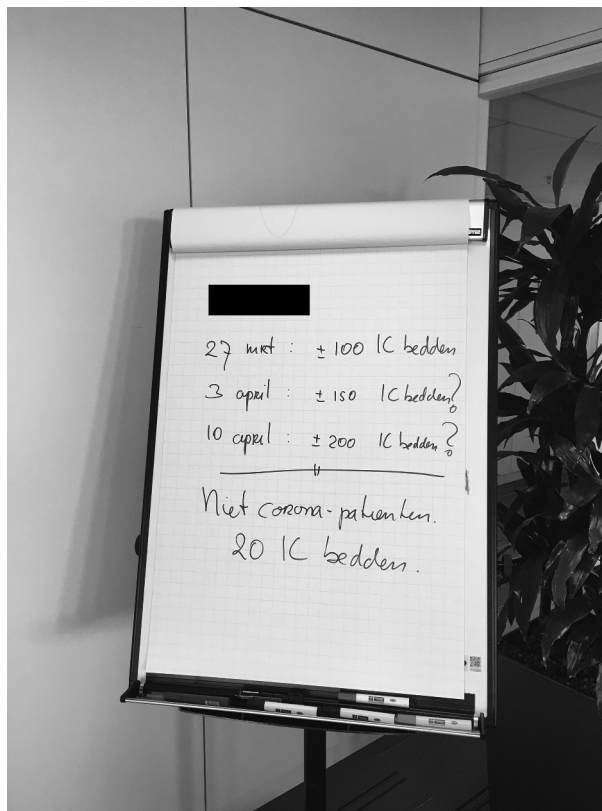 27 mrt : ± 100 IC bedden
3 april : ± 150 IC bedden?
10 april : ± 200 IC bedden?
Niet corona-patienten.
20 IC bedden.